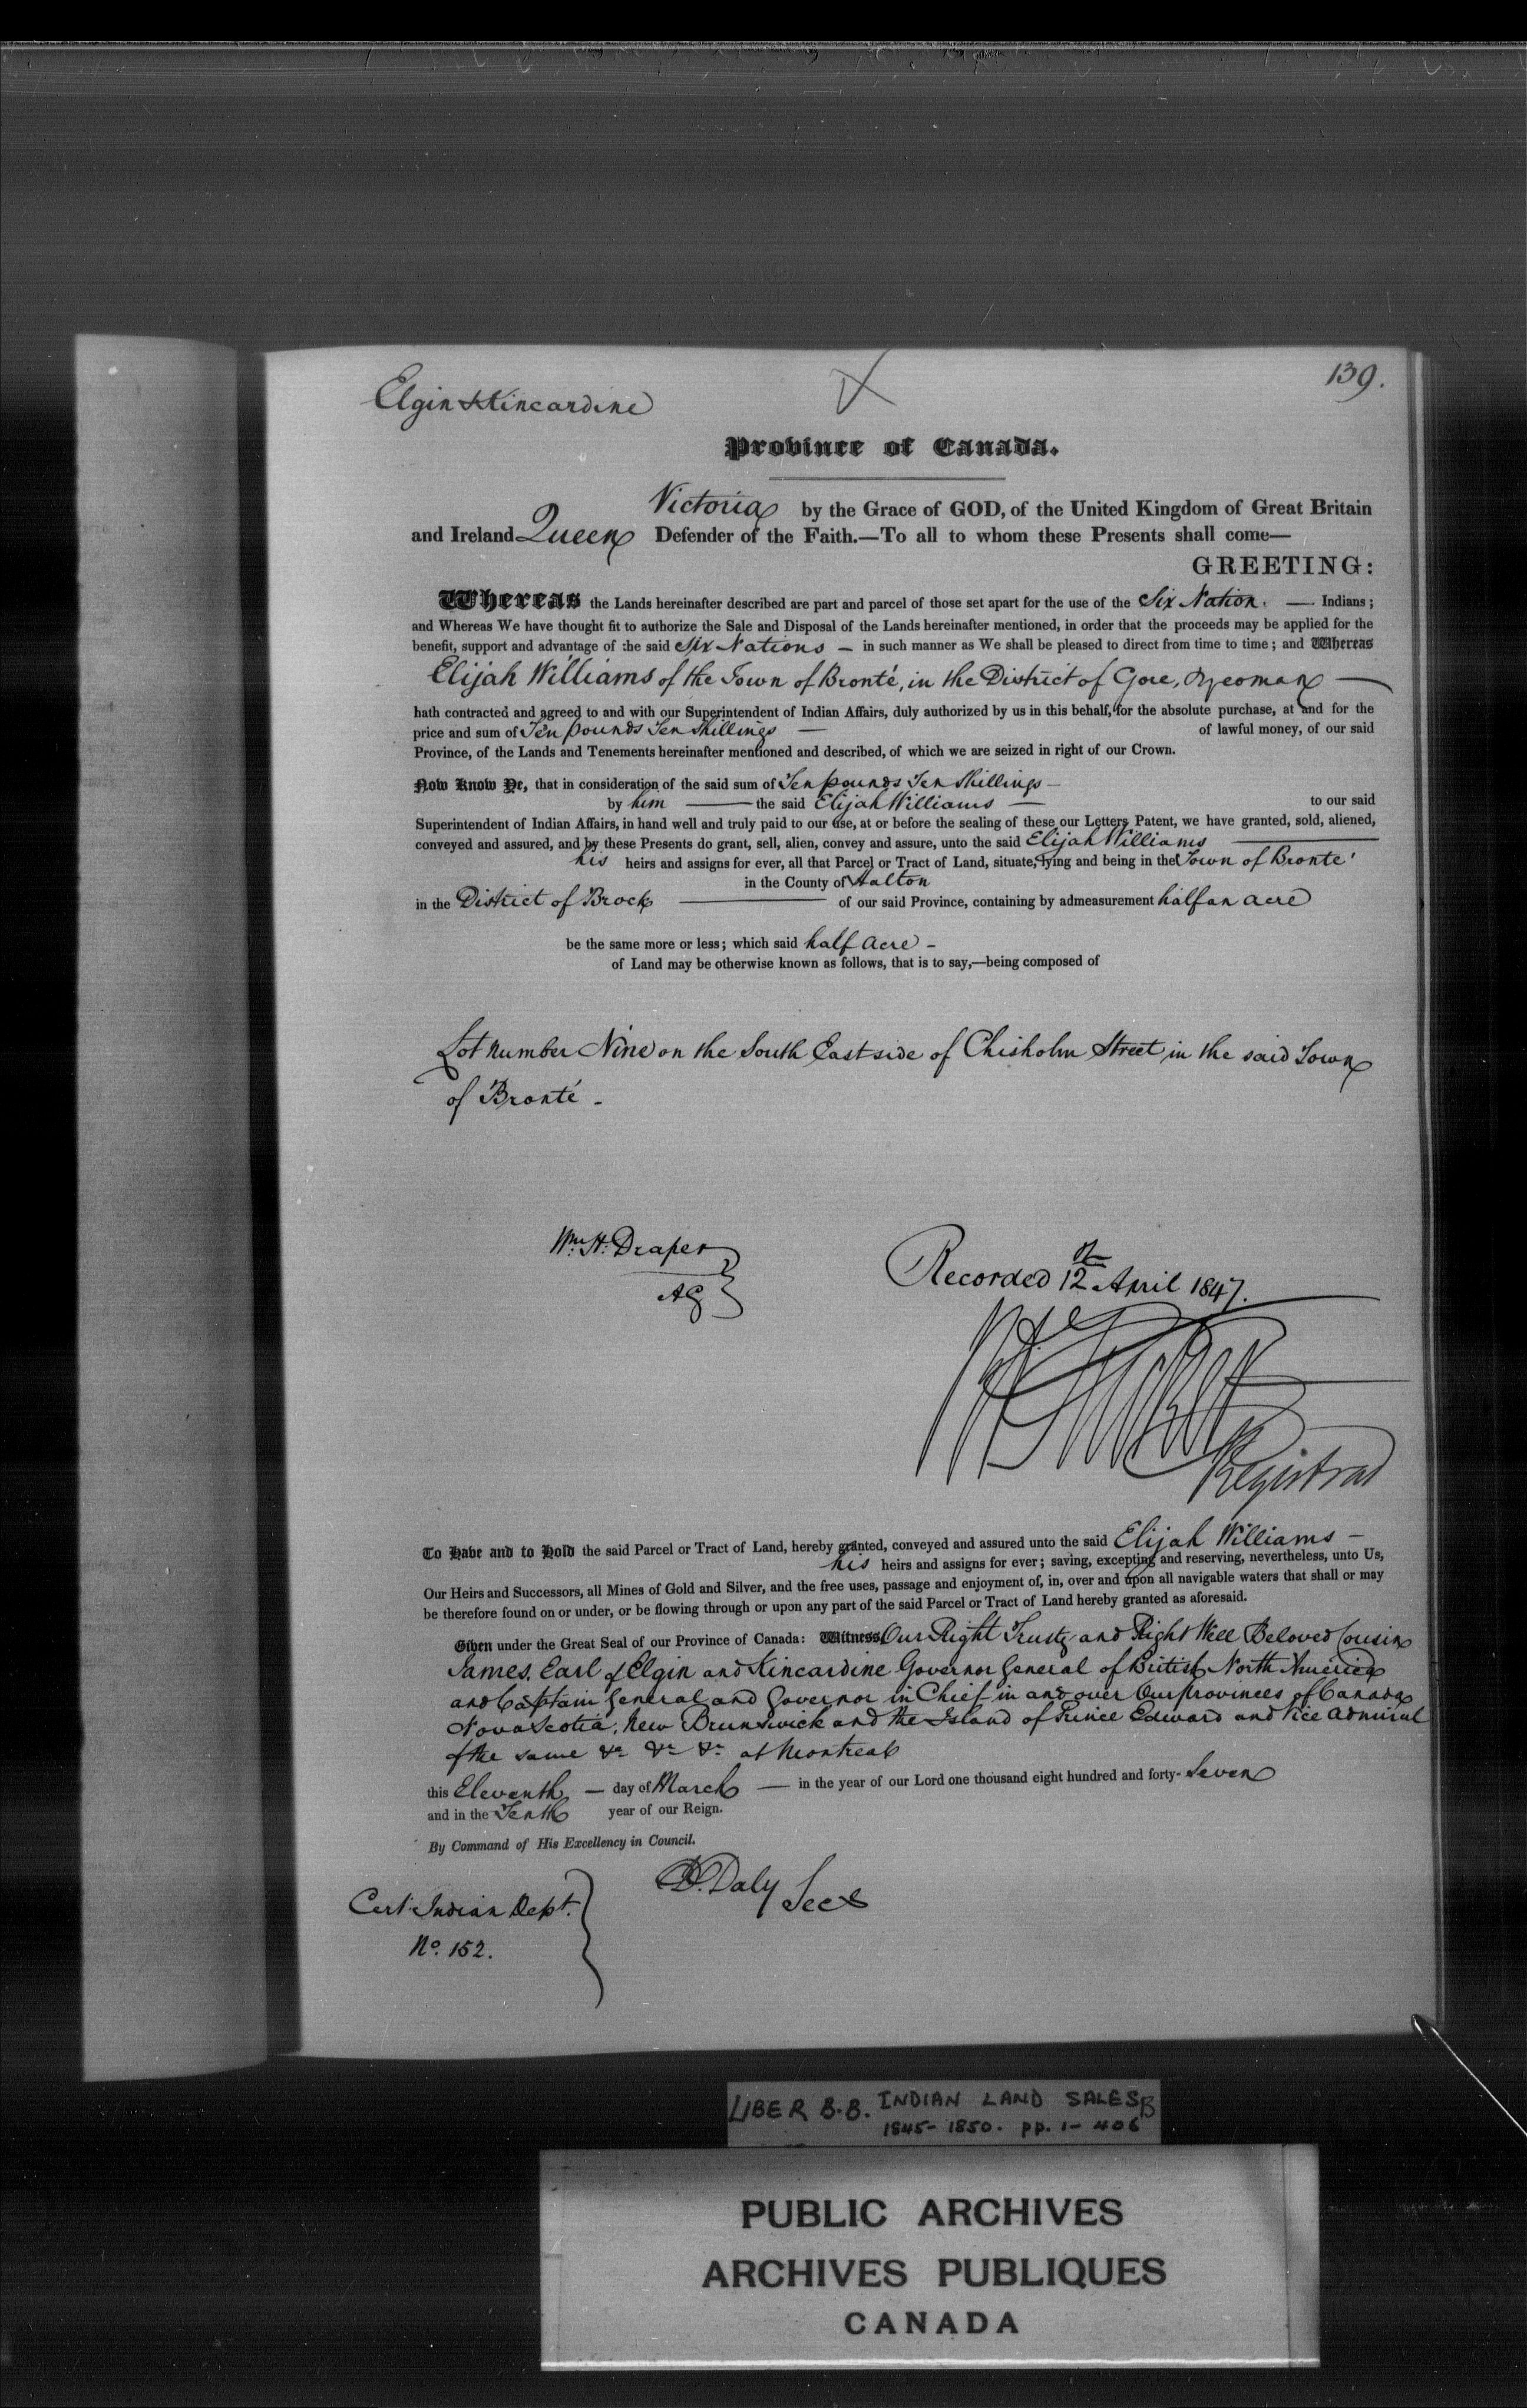 139.
Elgin & Kincardine
Province of Canada.
Victoria by the Grace of GOD, of the United Kingdom of Great Britain
and Ireland Queen Defender of the Faith.—To all to whom these Presents shall come—
GREETING:
Whereas the Lands hereinafter described are part and parcel of those set apart for the use of the Six Nation. — Indians;
and Whereas We have thought fit to authorize the Sale and Disposal of the Lands hereinafter mentioned, in order that the proceeds may be applied for the
benefit, support and advantage of the said Six Nations — in such manner as We shall be pleased to direct from time to time; and Whereas
Elijah Williams of the Town of Bronté, in the District of Gore, Yeoman —
hath contracted and agreed to and with our Superintendent of Indian Affairs, duly authorized by us in this behalf, for the absolute purchase, at and for the
price and sum of Ten pounds Ten Shillings — of lawful money, of our said
Province, of the Lands and Tenements hereinafter mentioned and described, of which we are seized in right of our Crown.
Now Know Ye, that in consideration of the said sum of Ten pounds Ten Shillings —
by him — the said Elijah Williams — to our said
Superintendent of Indian Affairs, in hand well and truly paid to our use, at or before the sealing of these our Letters Patent, we have granted, sold, aliened,
conveyed and assured, and by these Presents do grant, sell, alien, convey and assure, unto the said Elijah Williams —
his heirs and assigns for ever, all that Parcel or Tract of Land, situate, lying and being in the Town of Bronte'
in the County of Halton
in the District of Brock — of our said Province, containing by admeasurement half an acre
be the same more or less; which said half acre -
of Land may be otherwise known as follows, that is to say,—being composed of
Lot number Nine on the South East side of Chisholm Street in the said Town
of Bronté -
Wm. H. Draper
AG
Recorded 12th April 1847.
Registrar
To Have and to Hold the said Parcel or Tract of Land, hereby granted, conveyed and assured unto the said Elijah Williams —
his heirs and assigns for ever; saving, excepting and reserving, nevertheless, unto Us,
Our Heirs and Successors, all Mines of Gold and Silver, and the free uses, passage and enjoyment of, in, over and upon all navigable waters that shall or may
be therefore found on or under, or be flowing through or upon any part of the said Parcel or Tract of Land hereby granted as aforesaid.
Given under the Great Seal of our Province of Canada: Witness, Our Right Trusty and Right Well Beloved Cousin
James, Earl of Elgin and Kincardine Governor General of British North America
and Captain General and Governor in Chief in and over Our provinces of Canada
Nova Scotia, New Brunswick and the Island of Prince Edward and Vice Admiral
of the same &c &c &c at Montreal
this Eleventh — day of March — in the year of our Lord one thousand eight hundred and forty-Seven
and in the Tenth year of our Reign.
By Command of His Excellency in Council.
D. Daly Secy
Cert. Indian Dept.
No. 152.
LIBER B.B. INDIAN LAND SALES B
1845-1850. pp. 1-406
PUBLIC ARCHIVES
ARCHIVES PUBLIQUES
CANADA